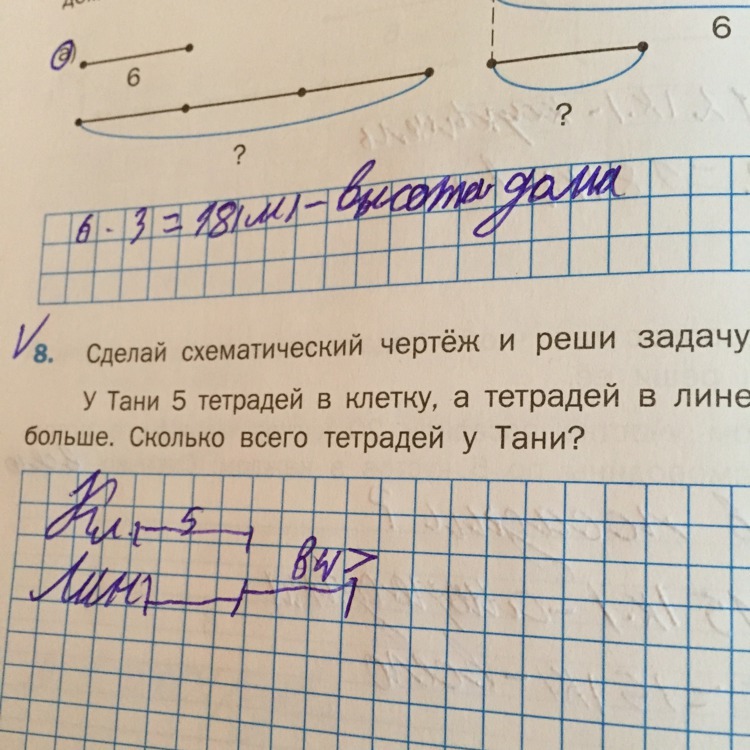 а
6
6
?
?
6 · 3 = 18(м) – высота дома
8. Сделай схематический чертёж и реши задачу
У Тани 5 тетрадей в клетку, а тетрадей в лине
больше. Сколько всего тетрадей у Тани?
Кл. 5
Лин